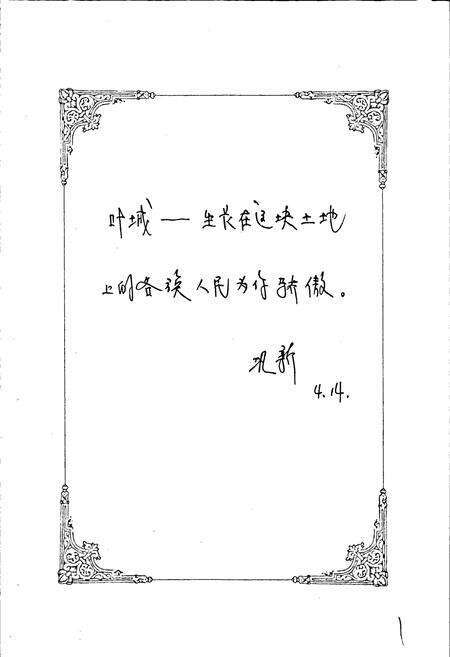 叶城——生长在这块土地
上的各族人民为你骄傲。
巩新
4.14.